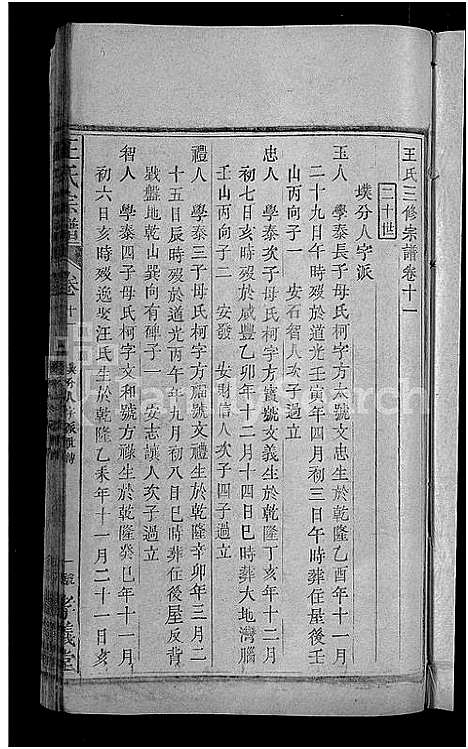 王氏三修宗譜卷十一
二十世
墣分人字派
玉人　學泰長子母氏柯字方太號文忠生於乾隆乙酉年十一月
二十九日午時歿於道光壬寅年四月初三日午時葬任屋後壬
山丙向子一　安石智人次子過立
忠人　學泰次子母氏柯字方寶號文義生於乾隆丁亥年十二月
初七日亥時歿於咸豐乙卯年十二月十四日巳時葬大地灣腦
壬山丙向子二　安發　安財信人次子四子過立
禮人　學泰三子母氏柯字方福號文禮生於乾隆辛卯年三月二
十五日辰時歿於道光丙午年九月初八日巳時葬任後屋反背
戲盤地乾山巽向有碑子一　安志讓人次子過立
智人　學泰四子母氏柯字文和號方祿生於乾隆癸巳年十一月
初六日亥時歿逸娶汪氏生於乾隆乙未年十一月二十一日亥
王氏宗譜
卷十
孝義堂